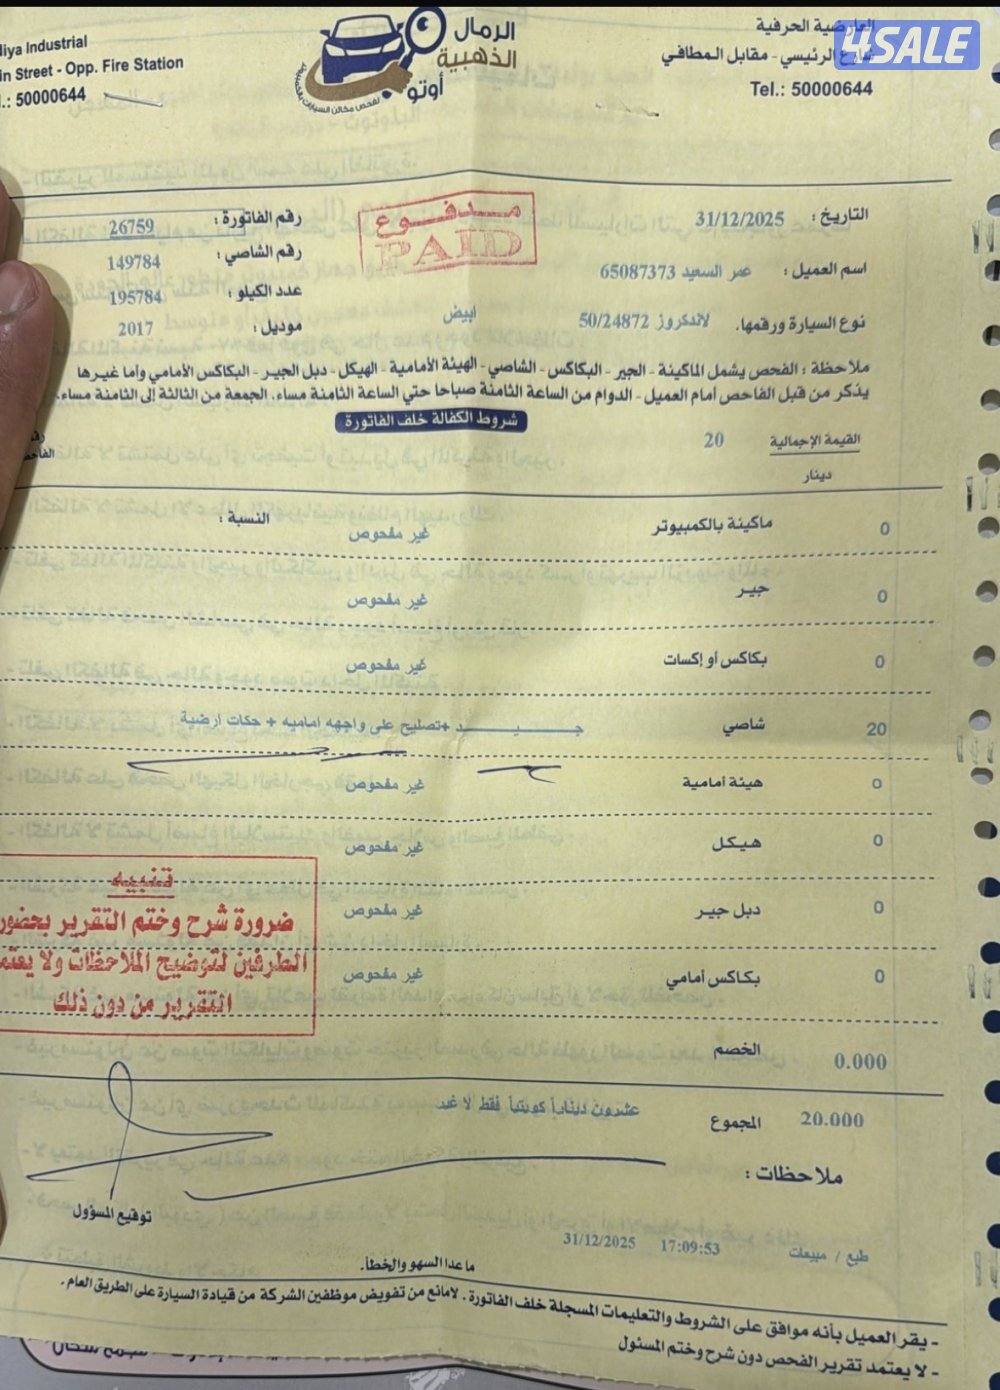 العارضية الحرفية
شارع الرئيسي - مقابل المطافي
Tel.: 50000644
4SALE
الرمال الذهبية أوتو
لفحص مكائن السيارات بالكمبيوتر
liya Industrial
in Street - Opp. Fire Station
l.: 50000644
التاريخ : 31/12/2025
مدفوع
PAID
رقم الفاتورة : 26759
اسم العميل : عمر السعيد 65087373
رقم الشاصي : 149784
نوع السيارة ورقمها. لاندكروز 50/24872 ابيض
عدد الكيلو : 195784
موديل : 2017
ملاحظة : الفحص يشمل الماكينة - الجير - البكاكس - الشاصي - الهيئة الأمامية - الهيكل - دبل الجير - البكاكس الأمامي وأما غيرها
يذكر من قبل الفاحص أمام العميل - الدوام من الساعة الثامنة صباحا حتي الساعة الثامنة مساء. الجمعة من الثالثة إلى الثامنة مساء.
شروط الكفالة خلف الفاتورة
القيمة الإجمالية 20
دينار
0 ماكينة بالكمبيوتر غير مفحوص النسبة :
0 جير غير مفحوص
0 بكاكس أو إكسات غير مفحوص
20 شاصي جــــيــــد +تصليح على واجهه اماميه + حكات ارضية
0 هيئة أمامية غير مفحوص
0 هيكل غير مفحوص
0 دبل جير غير مفحوص
0 بكاكس أمامي غير مفحوص
تنبيه
ضرورة شرح وختم التقرير بحضور
الطرفين لتوضيح الملاحظات ولا يعتمد
التقرير من دون ذلك
0.000 الخصم
20.000 المجموع عشرون ديناراً كويتياً فقط لا غير
ملاحظات :
توقيع المسؤول
طبع / مبيعات 17:09:53 31/12/2025
ما عدا السهو والخطأ.
- يقر العميل بأنه موافق على الشروط والتعليمات المسجلة خلف الفاتورة . لامانع من تفويض موظفين الشركة من قيادة السيارة على الطريق العام .
- لا يعتمد تقرير الفحص دون شرح وختم المسئول